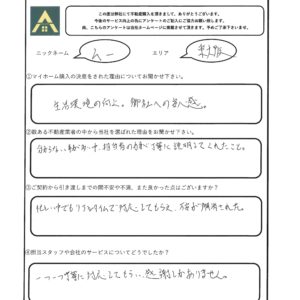 この度は弊社にて不動産購入を頂きまして、ありがとうございます。
今後のサービス向上の為にアンケートのご記入にご協力お願い致します。
尚、こちらのアンケートは当社ホームページに掲載させて頂きます。予めご了承下さいませ。
ニックネーム ムー エリア
①マイホーム購入の決意をされた理由についてお聞かせ下さい。
生活環境の向上。御社への
②数ある不動産業者の中から当社を選ばれた理由をお聞かせ下さい。
分からない 中、担当者の方が丁寧に説明してくれたこと。
③ご契約から引き渡しまでの間不安や不満、また良かった点はございますか？
忙しい中でもリアルタイムで対応してもらえ、 が解消された。
④担当スタッフや会社のサービスについてどうでしたか？
一つ一つ丁寧に対応してもらい、感謝しかありません。